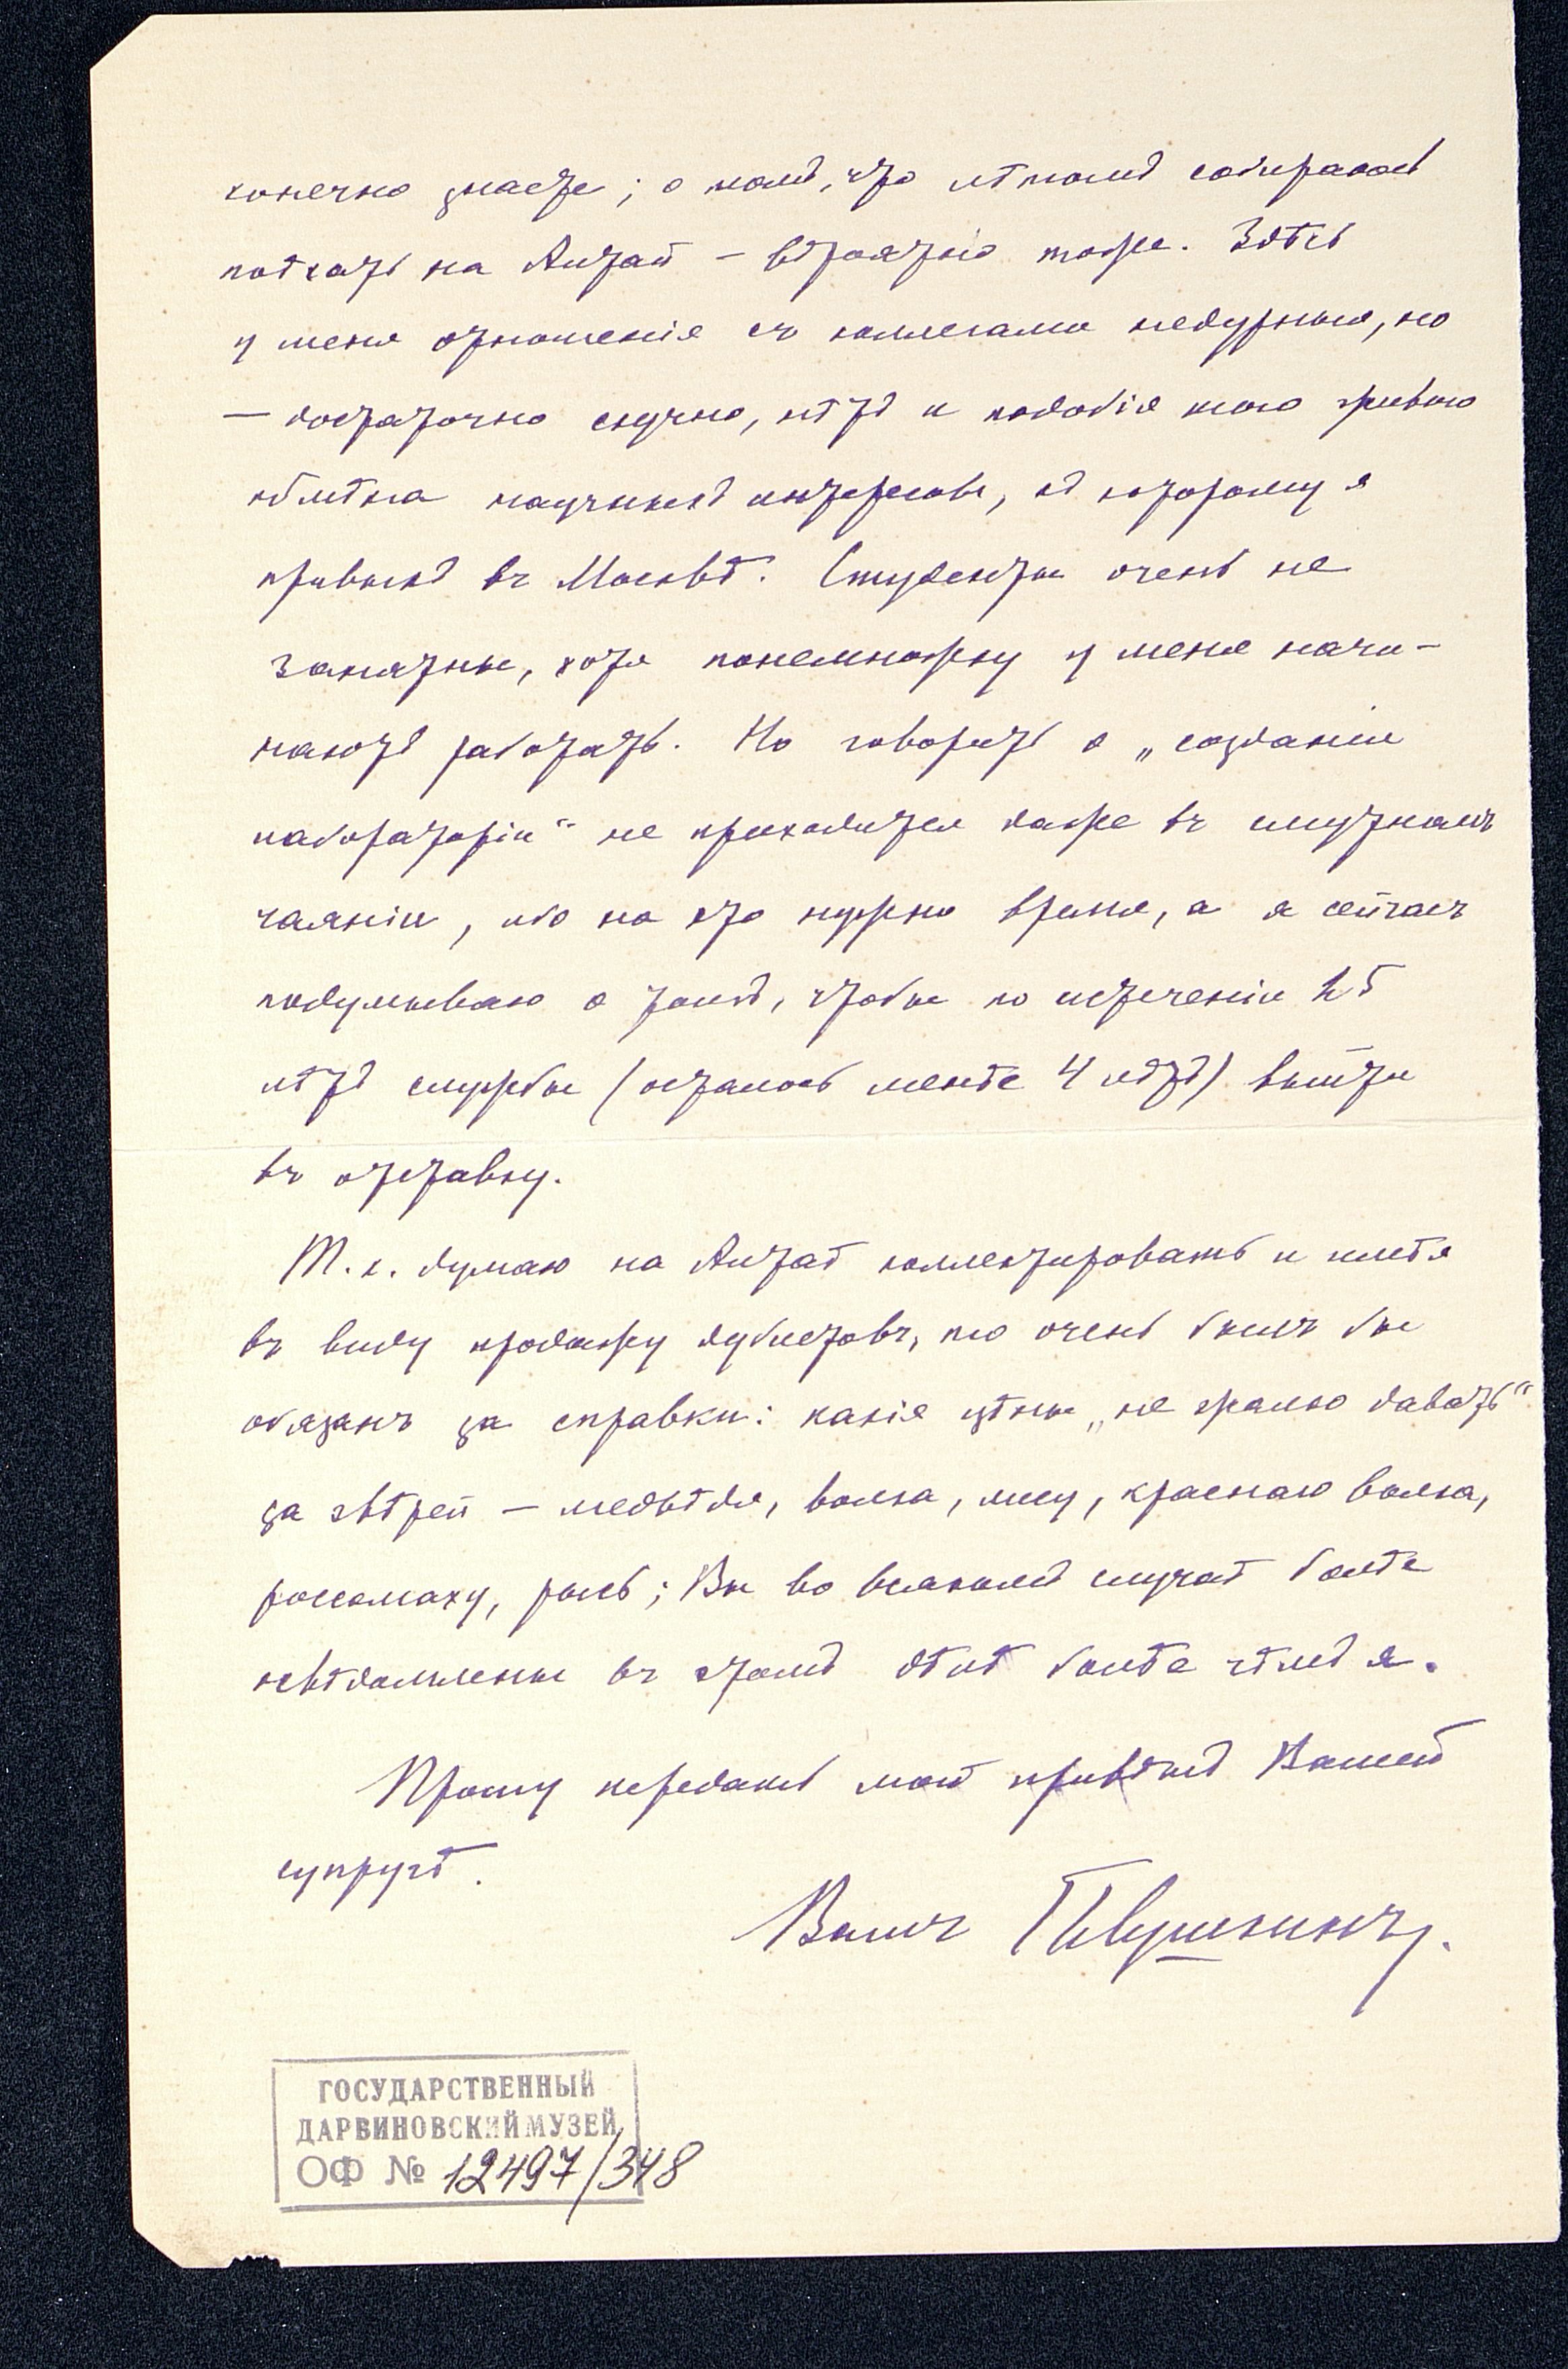 конечно знаете; о томъ, что лѣтомъ собираюсь
поѣхать на Алтай — вѣроятно тоже. Здѣсь
у меня отношенія съ коллегами недурныя, но
— достаточно скучно, нѣтъ и подобія того живого
обмѣна научныхъ интересовъ, къ которому я
привыкъ въ Москвѣ. Студенты очень не
занятны, хотя понемножку у меня начи-
наютъ работать. Но говорить о „созданіи
лабораторіи“ не приходится даже въ смутномъ
чаяніи, ибо на это нужно время, а я сейчасъ
подумываю о томъ, чтобы по истеченіи 25
лѣтъ службы (осталось менѣе 4 лѣтъ) выйти
въ отставку.
Т. к. думаю на Алтаѣ коллектировать и имѣя
въ виду продажу дублетовъ, то очень былъ бы
обязанъ за справки: какія цѣны „не жалко давать“
за звѣрей — медвѣдя, волка, лису, краснаго волка,
россомаху, рысь; Вы во всякомъ случаѣ болѣе
освѣдомлены въ этомъ дѣлѣ болѣе чѣмъ я.
Прошу передать мой привѣтъ Вашей
супругѣ.
Вашъ
ГОСУДАРСТВЕННЫЙ
ДАРВИНОВСКИЙ МУЗЕЙ
ОФ № 12497/348